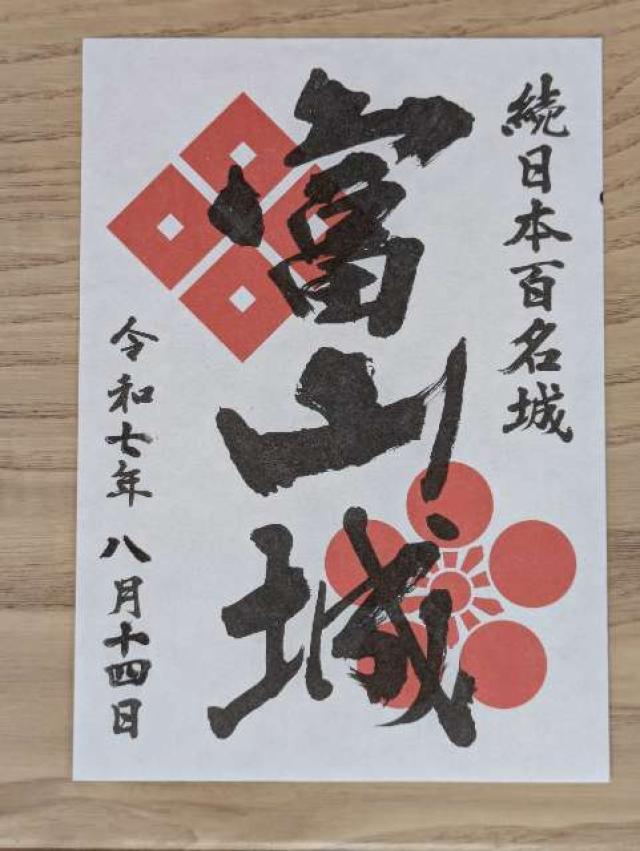 続日本百名城
富山城
令和七年八月十四日